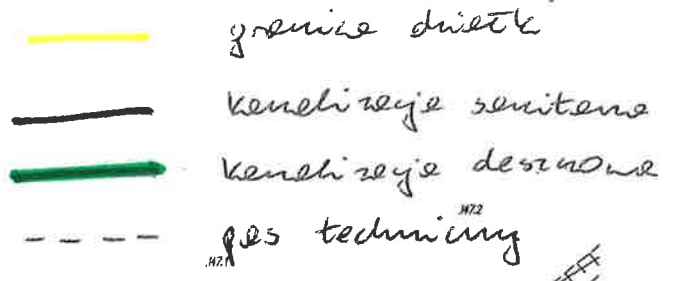 granica działk
kanalizacja sanitarna
kanalizacja deszczowa
pas techniczny
147.2
147.1